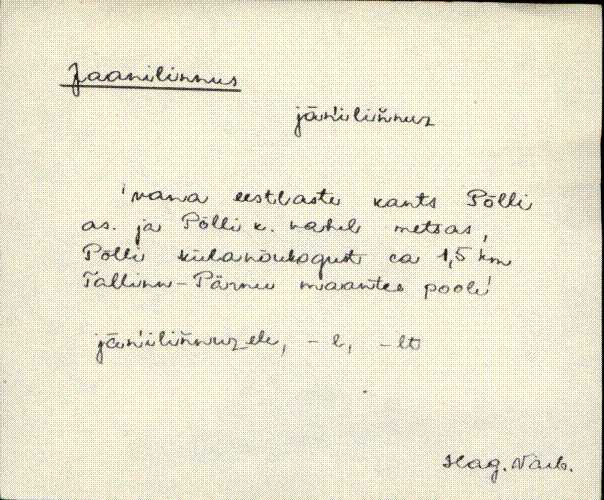 Jaanilinnus
jān'iliňnuz
'vana eestlaste kants Põlli
as. ja Põlli k. vahel metsas,
Põlli külanõukogust ca 1,5 km
Tallinn-Pärnu maantee pool'
jān'iliňnuzele, -l, -lt
Hag.